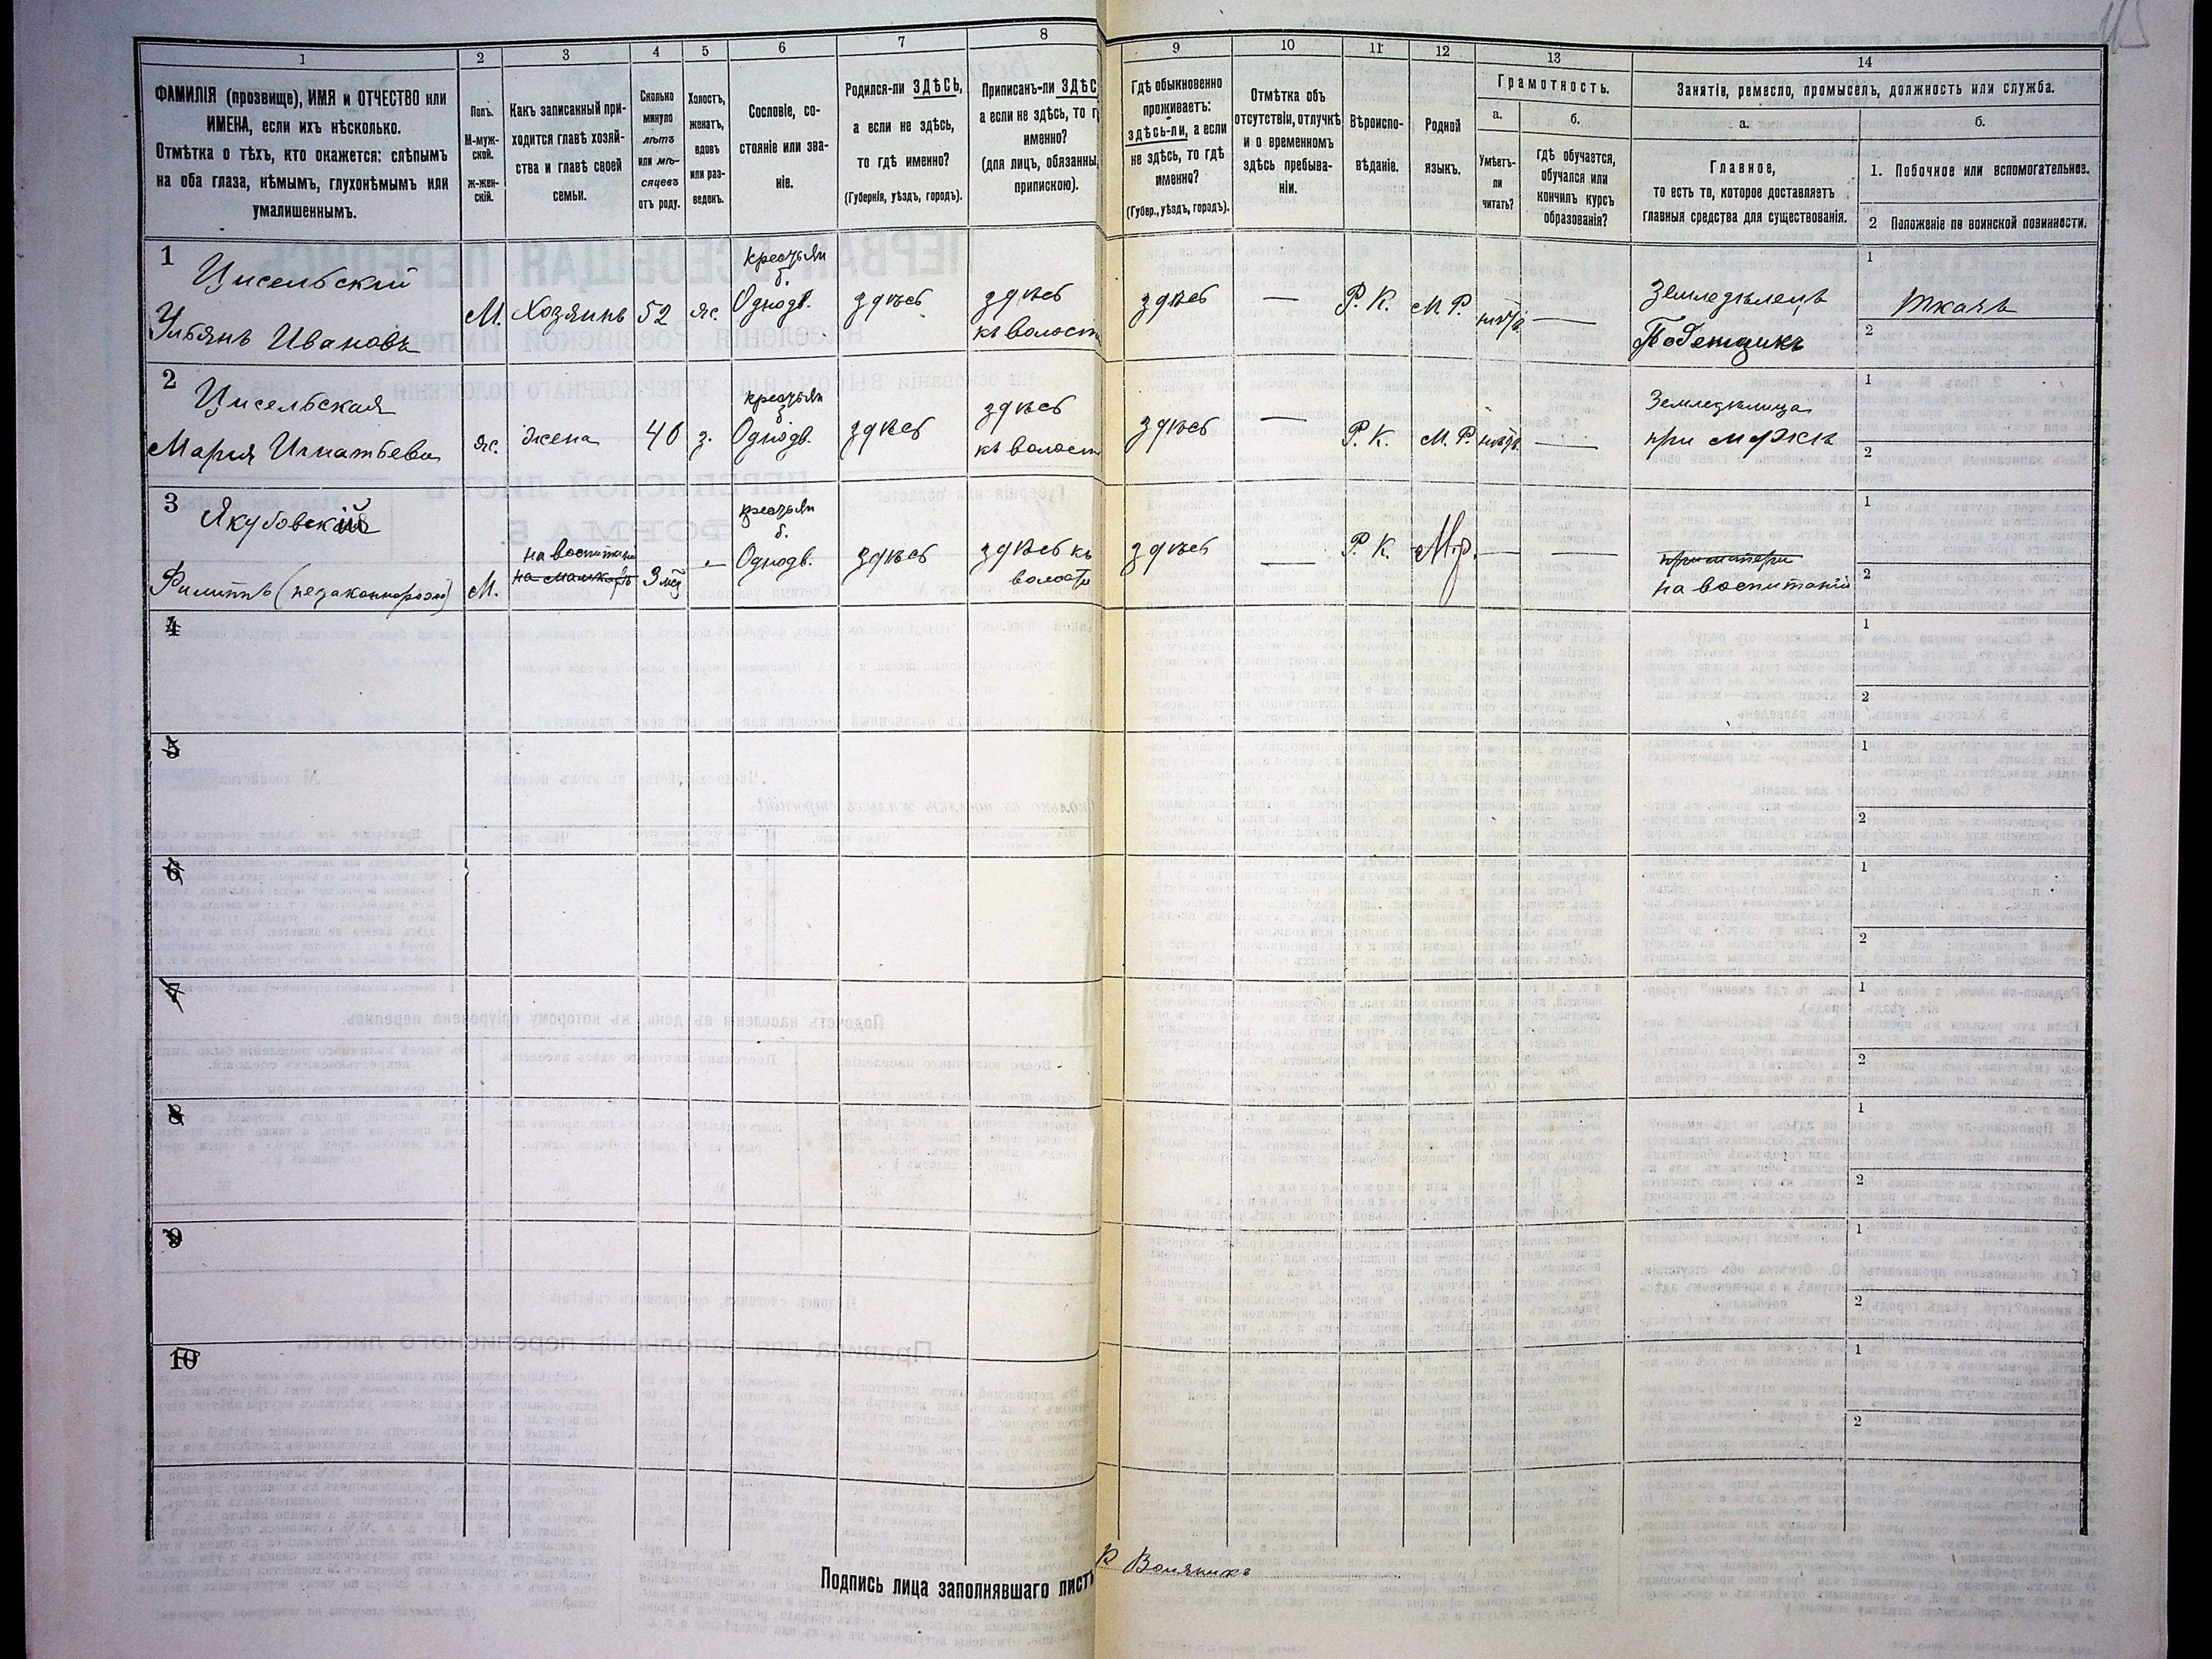 1
2
3
4
5
6
7
8
ФАМИЛІЯ (прозвище), ИМЯ и ОТЧЕСТВО или
ИМЕНА, если ихъ нѣсколько.
Отмѣтка о тѣхъ, кто окажется: слѣпымъ
на оба глаза, нѣмымъ, глухонѣмымъ или
умалишеннымъ.
Полъ.
М-муж-
ской.
ж-жен-
скій.
Какъ записанный при-
ходится главѣ хозяй-
ства и главѣ своей
семьи.
Сколько
минуло
лѣтъ
или мѣ-
сяцевъ
отъ роду.
Холостъ,
женатъ,
вдовъ
или раз-
веденъ.
Сословіе, со-
стояніе или зва-
ніе.
Родился-ли ЗДѢСЬ,
а если не здѣсь,
то гдѣ именно?
(Губернія, уѣздъ, городъ).
Приписанъ-ли ЗДѢС
а если не здѣсь, то г
именно?
(для лицъ, обязанны
припискою).
9
10
11
12
13
14
Гдѣ обыкновенно
проживаетъ:
здѣсь-ли, а если
не здѣсь, то гдѣ
именно?
(Губер., уѣздъ, городъ).
Отмѣтка объ
отсутствіи, отлучкѣ
и о временномъ
здѣсь пребыва-
ніи.
Вѣроиспо-
вѣданіе.
Родной
языкъ.
Грамотность.
а.
б.
Умѣетъ-
ли
читать?
Гдѣ обучается,
обучался или
кончилъ курсъ
образованія?
Занятіе, ремесло, промыселъ, должность или служба.
а.
б.
Главное,
то есть то, которое доставляетъ
главныя средства для существованія.
1. Побочное или вспомогательное.
2 Положеніе по воинской повинности.
1
Цисельскій
Ульянъ Ивановъ
М.
Хозяинъ
52
ж.
крестьян
б.
Однодв.
здѣсь
здѣсь
къ волости
здѣсь
—
Р. К.
М Р.
нѣтъ
—
Земледѣлецъ
Поденщикъ
1
Ткачъ
2
2
Цисельская
Марія Игнатьева
ж.
жена
40
з.
крестьян
б.
Однодв.
здѣсь
здѣсь
къ волости
здѣсь
—
Р. К.
М. Р.
нѣтъ
—
Земледѣлица
при мужѣ
1
2
3
Якубовскій
Филиппъ (незаконнорожд)
М.
на воспитаніи
3 мѣ
-
крестьян
б.
Однодв.
здѣсь
здѣсь къ
волости
здѣсь
—
Р. К.
М.р.
—
—
при матери
на воспитаніи
1
2
4
1
2
5
1
2
6
1
2
7
1
2
8
1
2
9
1
2
10
1
2
Подпись лица заполнявшаго листъ